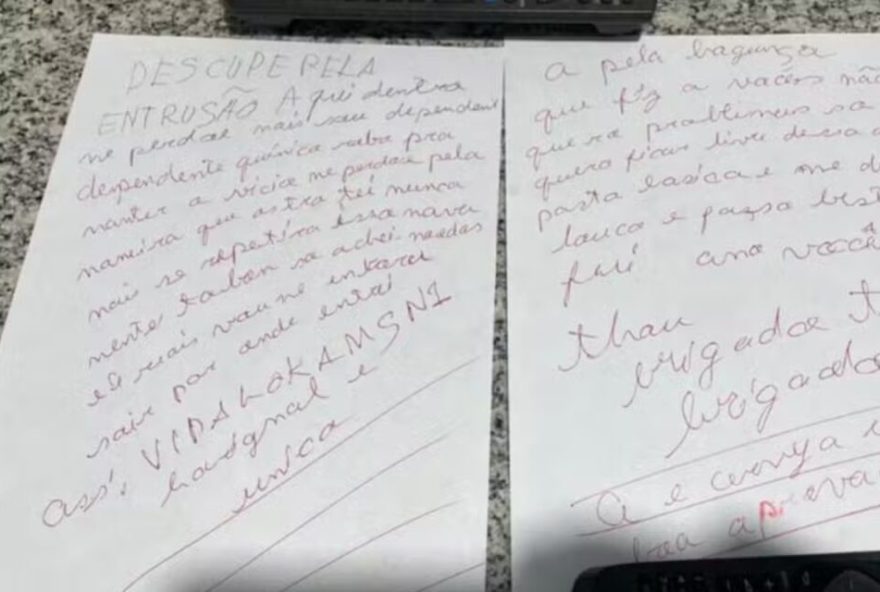 DESCUPE PELA
ENTRUSÃO Aqui dentro
me perdoe mais sou dependent
dependente química robo pra
manter o vício me perdoe pela
maneira que astra tei nunca
mais se repetira issa nava
mente taben so achei moedas
ese mais vou me entorar
sair por onde entrei
ass: VIDALOKAMSN1
horignal e
unica
a pela bagunça
que fiz a voces não
quero problemas so
quero ficar livre dessa
pasta e me d
louco e passo
fui amo você
thau
brigadoe t
brigado
a e cerveja
boa aprova